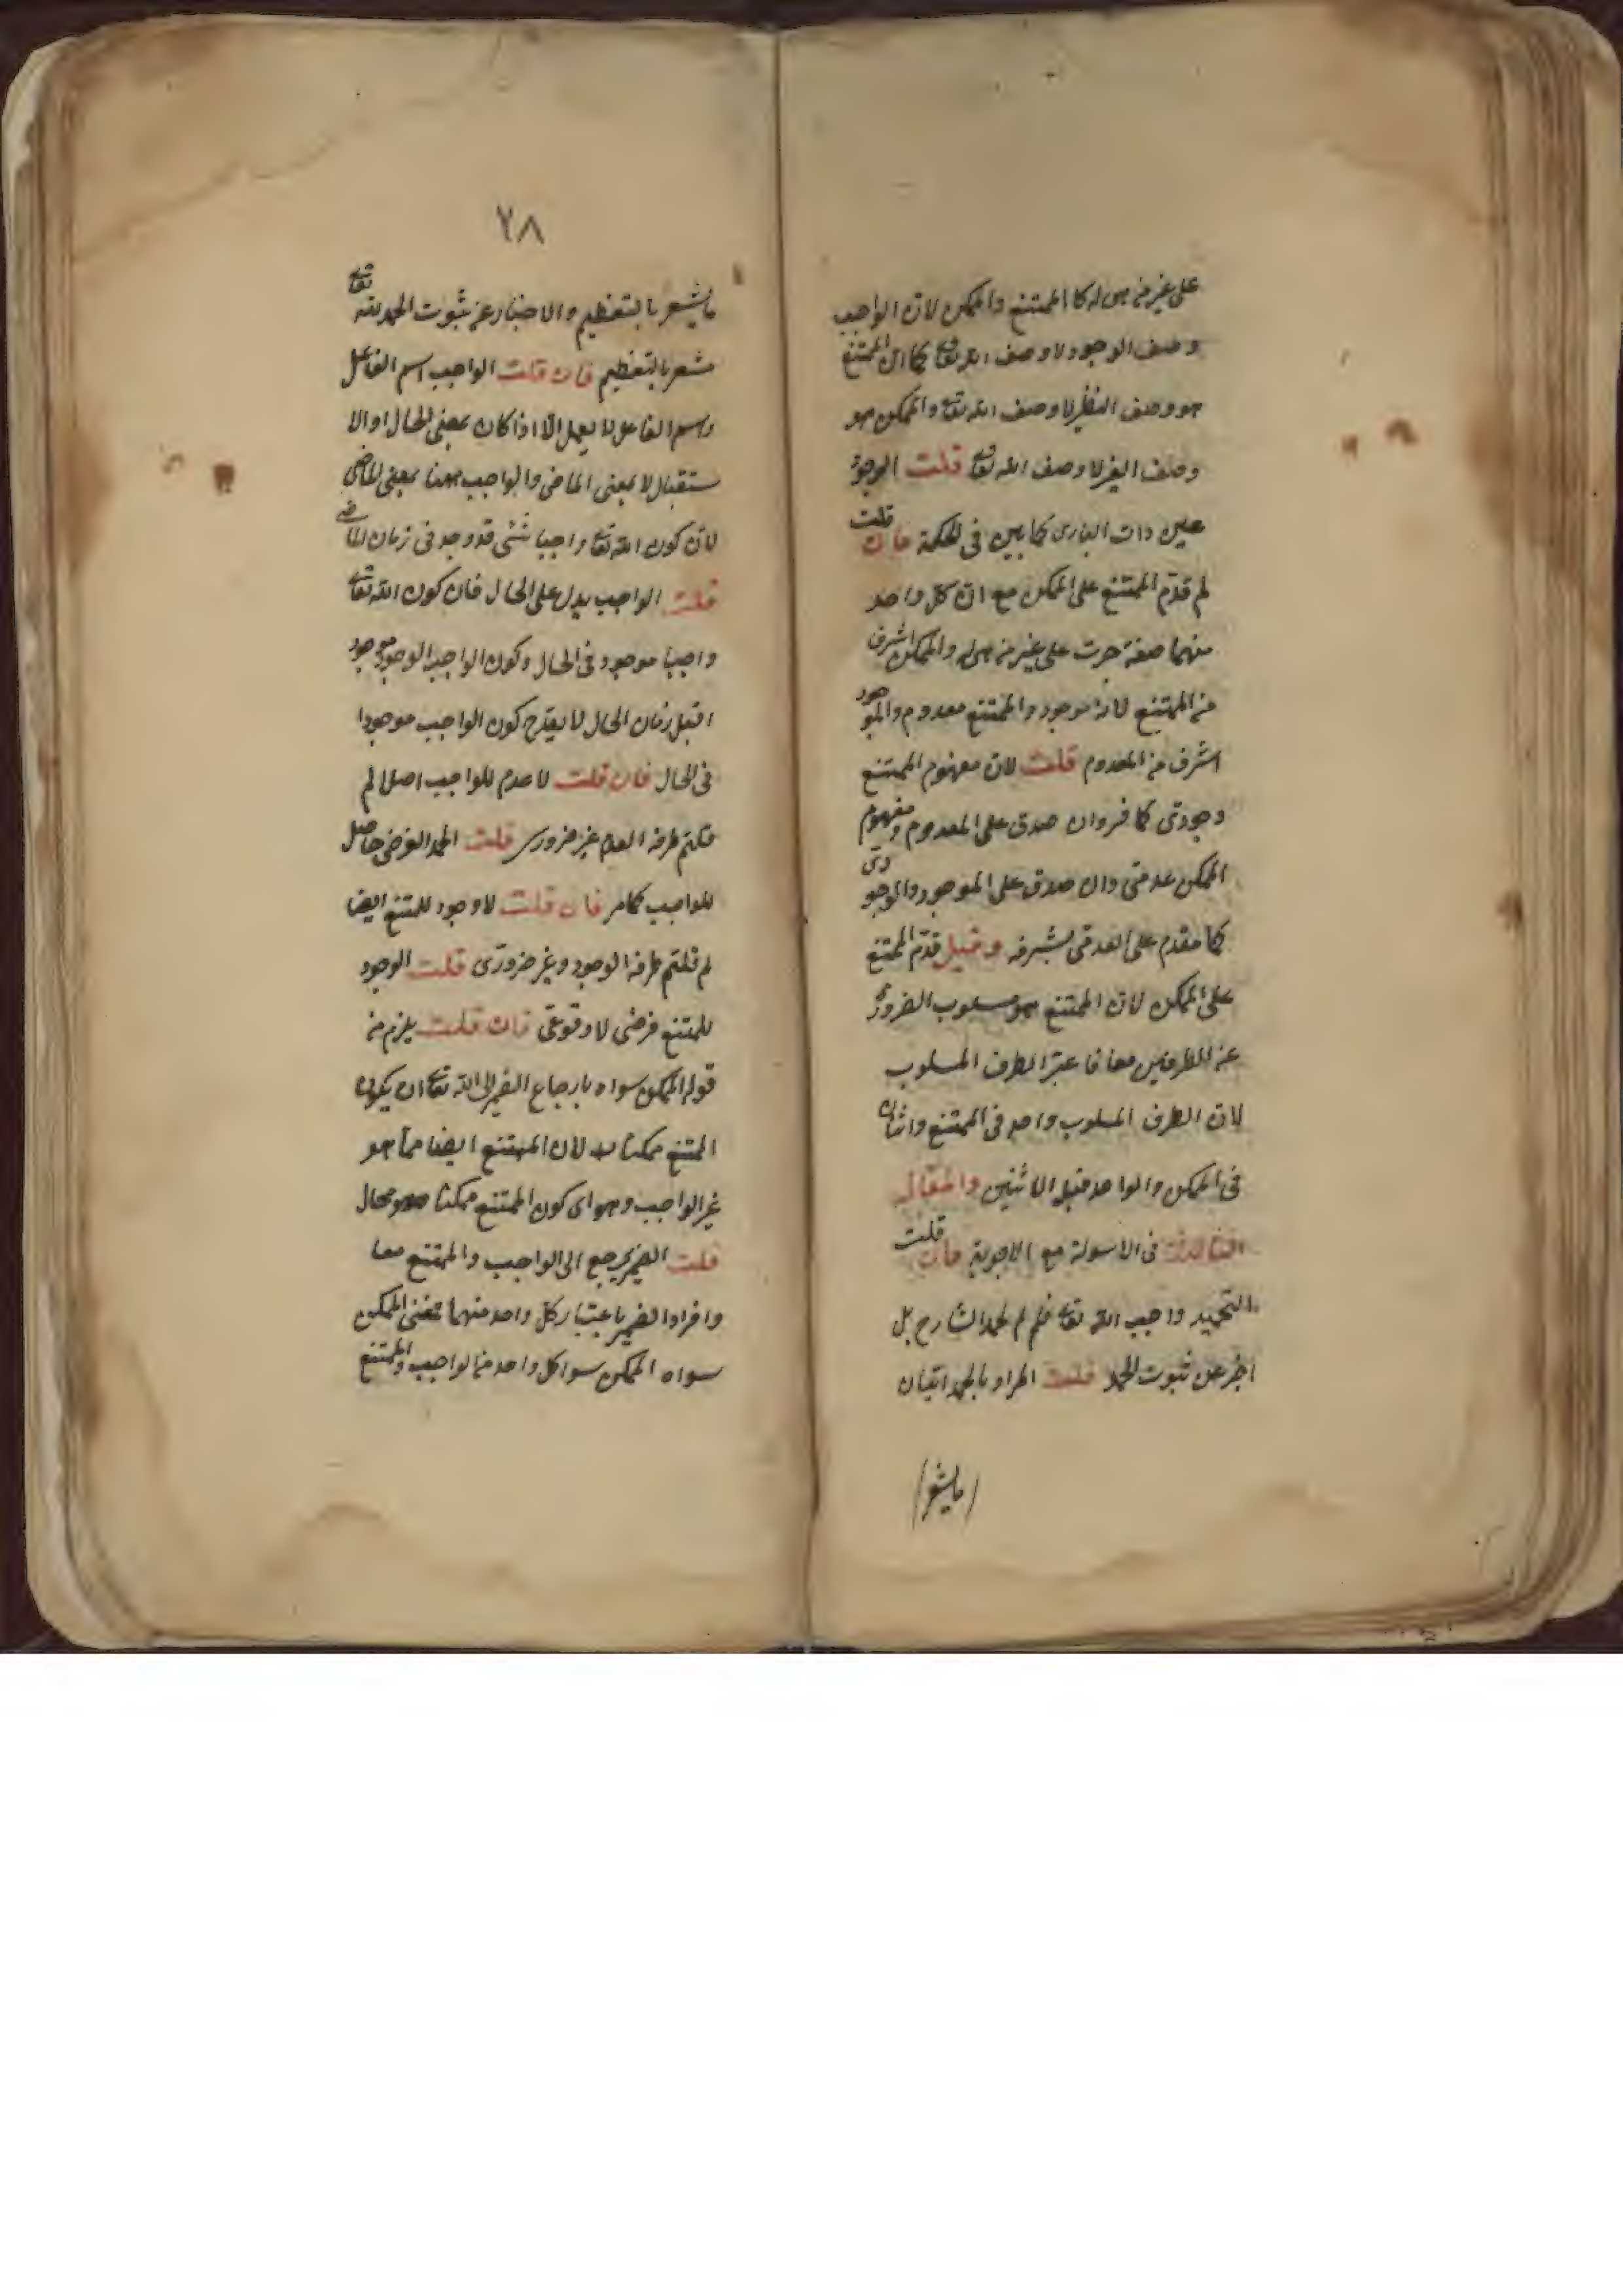 على غير من هى له كا الممتنع والممكن لان الواجب
وصف الوجود لا وصف الله تعا كما ان الممتنع
هو وصف النظير لا وصف الله تعا والممكن هو
وصف الغير لا وصف الله تعا قلت الوجود
عين ذات البارى كما بين فى الحكمة فان قلت
لم قدّم الممتنع على الممكن مع ان كل واحد
منهما صفة جرت على غير من هى له والممكن اشرف
من الممتنع لانه موجود والممتنع معدوم والموجود
اشرف من المعدوم قلت لان مفهوم الممتنع
وجودى كا فر وان صدق على المعدوم ومفهوم
الممكن عدمى وان صدق على الموجود والوجودى
كما مقدم على العدمى لشرفه وقيل قدّم الممتنع
على الممكن لان الممتنع هو مسلوب الضرورة
عن الطرفين معا فا عتبر الطرف المسلوب
لان الطرف المسلوب واحد فى الممتنع واثنان
فى الممكن والواحد قبل الاثنين والمقالة
الثالثة فى الاسولة مع الاجوبة فان قلت
التحميد واجب الله تعا فلم لم يحمد الشارح بل
اخبر عن ثبوت الحمد قلت المراد بالحمد اتيان
مايشعر
٢٨
مايشعر بالتعظيم والاخبار عن ثبوت الحمد لله تعا
مشعر بالتعظيم فان قلت الواجب اسم الفاعل
واسم الفاعل لا يعمل الا اذا كان بمعنى الحال او الا
ستقبال لا بمعنى الماضى والواجب ههنا بمعنى الماضى
لان كون الله تعا واجبا شئ قد وجد فى زمان الماضى
قلت الواجب يدل على الحال فان كون الله تعا
واجبا موجود فى الحال وكون الواجب الوجود موجود
ا قبل زمان الحال لا يقدح كون الواجب موجودا
فى الحال فان قلت لا عدم للواجب اصلا لم
قلتم طرفه العدم غير ضرورى قلت الحمد الفرضى حاصل
للواجب كامر فان قلت لا وجود للمتنع ايضا
لم قلتم طرفه الوجود وغير ضرورى قلت الوجود
للمتنع فرضى لا وقوعى فان قلت يلزم من
قوله الممكن سواه بارجاع الضمير الى الله تعا ان يكون
الممتنع ممكنا له لان الممتنع ايضا مما هو
غير الواجب وهو اى كون الممتنع ممكنا محال
قلت الضمير يرجع الى الواجب والممتنع معا
وافراد الضمير باعتبار كل واحد منهما فمعنى الممكن
سواه الممكن سوا كل واحد من الواجب والممتنع